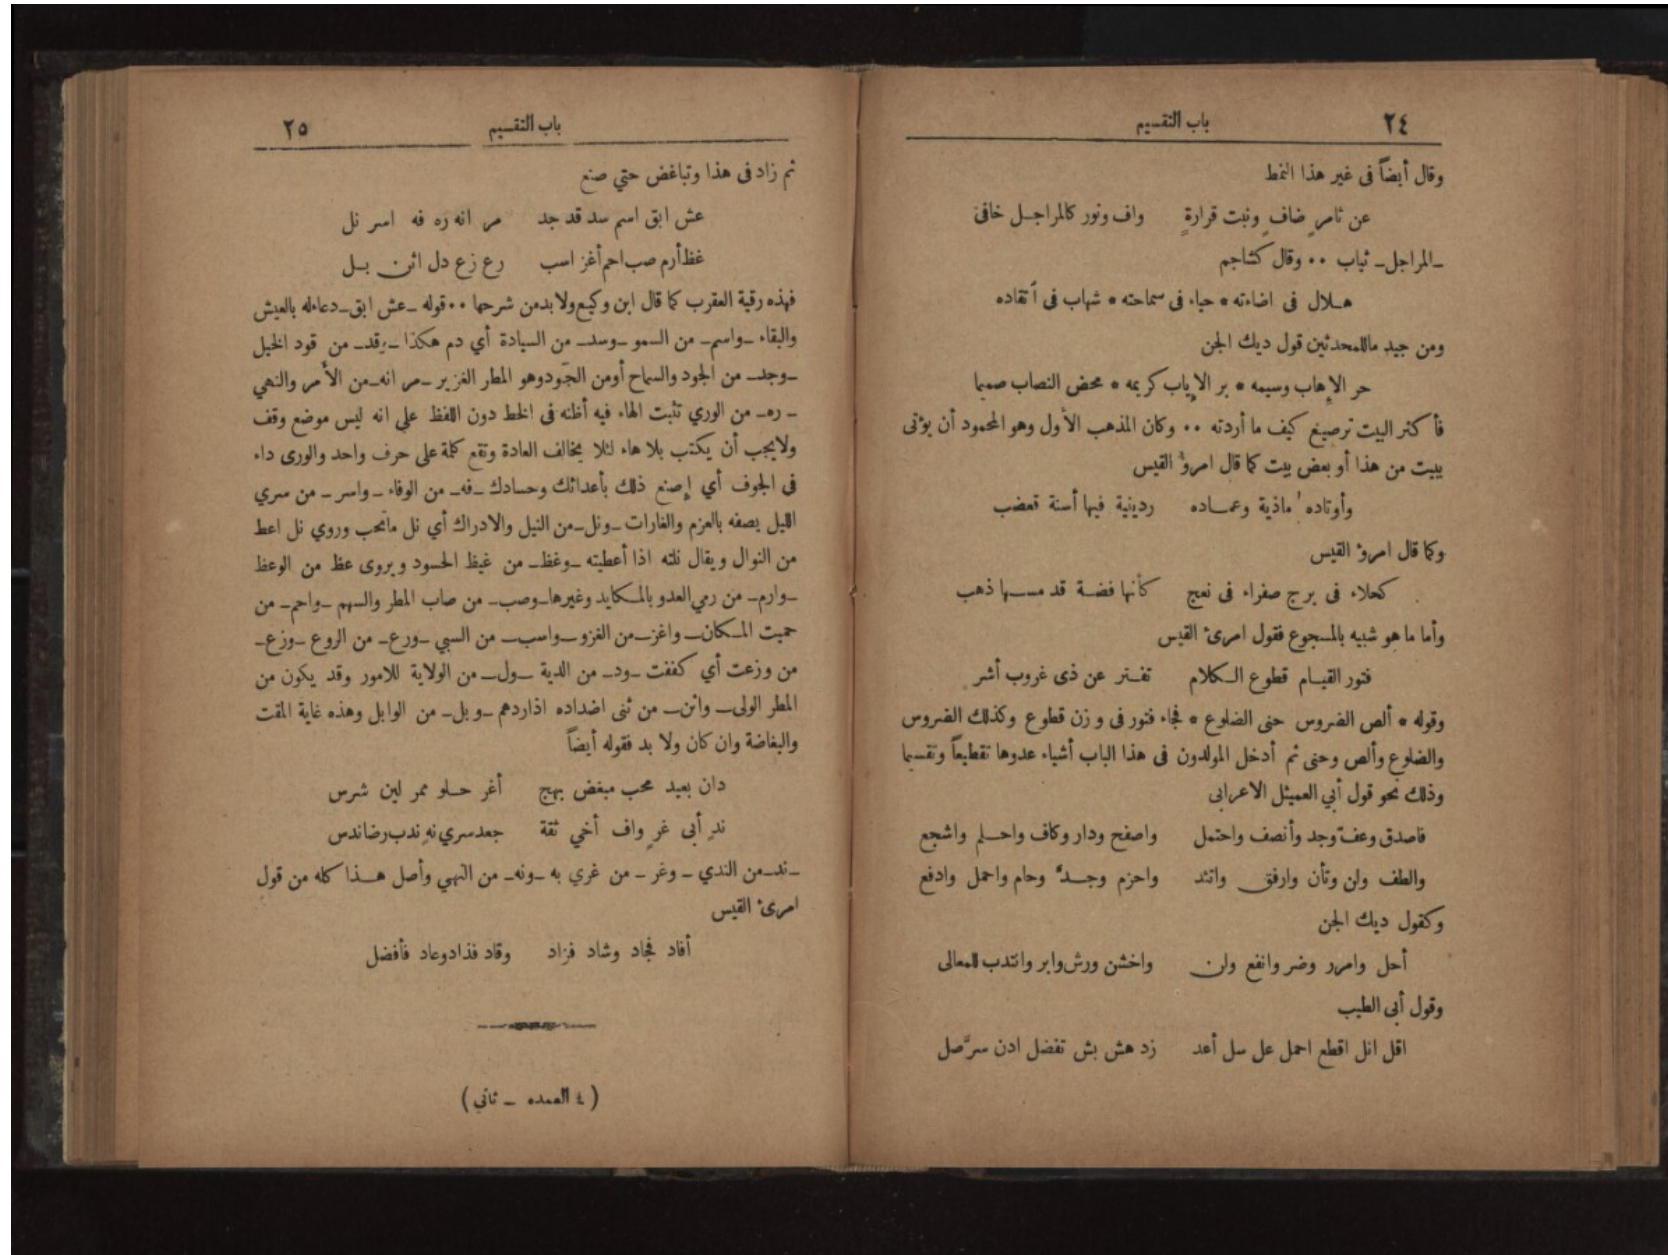 ٢٤
باب التقسيم
وقال أيضاً فى غير هذا النمط
عن ثامرٍ ضافٍ ونبت قرارةٍ واف ونور كالمراجل خافى
ـ المراجل ـ ثياب ٠٠ وقال كشاجم
هلال فى اضاءته * حياء فى سماحته * شهاب فى اتقاده
ومن جيد ماللمحدثين قول ديك الجن
حر الإهاب وسيمه * بر الإياب كريمه * محض النصاب صميما
فأكثر البيت ترصيع كيف ما أردته ٠٠ وكان المذهب الأول وهو المحمود أن يؤتى
ببيت من هذا أو بعض بيت كما قال امرؤ القيس
وأوتاده ماذية وعماده ردينية فيها أسنة قعضب
وكما قال امرؤ القيس
كحلاء فى برج صفراء فى نعج كأنها فضة قد مسها ذهب
وأما ما هو شبيه بالمسجوع فقول امرئ القيس
فتور القيام قطوع الكلام تفتر عن ذى غروب أشر
وقوله * ألص الضروس حنى الضلوع * فجاء فتور فى وزن قطوع وكذلك الضروس
والضلوع وألص وحنى ثم أدخل المولدون فى هذا الباب أشياء عدوها تقطيعاً وتقسيما
وذلك نحو قول أبي العميثل الاعرابى
فاصدق وعف وجد وأنصف واحتمل واصفح ودار وكاف واحلم واشجع
والطف ولن وتأن وارفق واتئد واحزم وجد وحام واحمل وادفع
وكقول ديك الجن
أحل وامرر وضر وانفع ولن واخشن ورش وابر وانتدب للمعالى
وقول أبى الطيب
اقل انل اقطع احمل عل سل أعد زد هش بش تفضل ادن سر صل
باب التقسيم
٢٥
ثم زاد فى هذا وتباغض حتي صنع
عش ابق اسم سد قد جد مر انه ره فه اسر نل
غظ أرم صب احم أغز اسب رع زع دل اثن بل
فهذه رقية العقرب كما قال ابن وكيع ولا بد من شرحها ٠٠ قوله ـ عش ابق ـ دعاء له بالعيش
والبقاء ـ واسم ـ من السمو ـ وسد ـ من السيادة أي دم هكذا ـ وقد ـ من قود الخيل
ـ وجد ـ من الجود والسماح أو من الجَود وهو المطر الغزير ـ مر انه ـ من الأمر والنهي
ـ ره ـ من الوري تثبت الهاء فيه أظنه فى الخط دون اللفظ على انه ليس موضع وقف
ولا يجب أن يكتب بلا هاء لئلا يخالف العادة وتقع كلمة على حرف واحد والورى داء
فى الجوف أي إصنع ذلك بأعدائك وحسادك ـ فه ـ من الوفاء ـ واسر ـ من سري
الليل يصفه بالعزم والغارات ـ ونل ـ من النيل والادراك أي نل ماتحب وروي نل اعط
من النوال ويقال نلته اذا أعطيته ـ وغظ ـ من غيظ الحسود ويروى عظ من الوعظ
ـ وارم ـ من رمي العدو بالمكايد وغيرها ـ وصب ـ من صاب المطر والسهم ـ واحم ـ من
حميت المكان ـ واغز ـ من الغزو ـ واسب ـ من السبي ـ ورع ـ من الروع ـ وزع ـ
من وزعت أي كففت ـ ود ـ من الدية ـ ول ـ من الولاية للامور وقد يكون من
المطر الولى ـ واثن ـ من ثنى اضداده اذا ردهم ـ وبل ـ من الوابل وهذه غاية المقت
والبغاضة وان كان ولا بد فقوله أيضاً
دان بعيد محب مبغض بهج أغر حلو ممر لين شرس
ندٍ أبى غرٍ واف أخي ثقة جعد سري نهٍ ندب رضا ندس
ـ ند ـ من الندي ـ وغر ـ من غري به ـ ونه ـ من النهي وأصل هذا كله من قول
امرئ القيس
أفاد فجاد وشاد فزاد وقاد فذاد وعاد فأفضل
( ٤ العمده ـ ثاني )